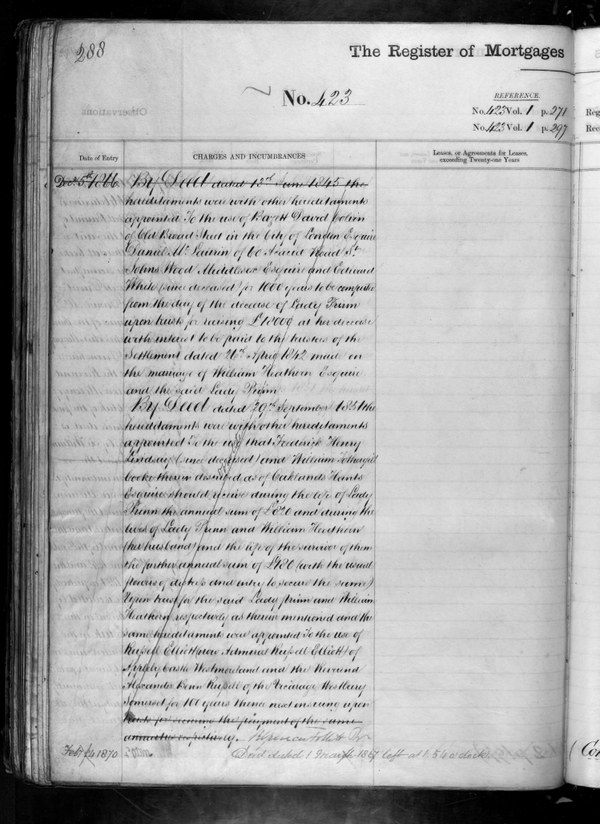 288
The Register of Mortgages
No. 423
REFERENCE.
No. 423 Vol. 1 p. 271
No. 423 Vol. 1 p. 297
Date of Entry
CHARGES AND INCUMBRANCES
Leases, or Agreements for Leases,
exceeding Twenty-one Years
Decr 5th 1866
By Deed dated 13th June 1845 the
hereditaments were with other hereditaments
appointed To the use of David
of Old Broad Street in the City of London Esquire
Daniel of 60 Road St
Johns Wood Middlesex Esquire and Edward
White (since deceased) for 1000 years to be computed
from the day of the decease of Lady
upon trust for raising at her decease
with interest to be paid to the trustees of the
Settlement dated 26th 1842 made on
the marriage of William Heathorn Esquire
and the said Lady
By Deed dated 29th September 1851 the
hereditaments were with other hereditaments
appointed To the use that Frederick Henry
Lindsay (since deceased) and William
therein described as of Oaklands Hants
Esquire should receive during the life of Lady
the annual sum of and during the
lives of Lady and William Heathorn
(her husband) and the life of the survivor of them
the further annual sum of with the usual
powers of distress and entry to secure the same
Upon trust for the said Lady and William
Heathorn respectively as therein mentioned and the
same hereditaments were appointed To the use of
Russell Elliott (now Admiral Russell Elliott) of
Appleby Castle Westmorland and the Reverend
Alexander Russell of the Westbury
Somerset for 101 years thence next ensuing upon
trusts for securing the payment of the same
annuities respectively.
Feby 1870
Deed dated 1 left at 1.54 o'clock
Observations
Reg
Rec
(Con